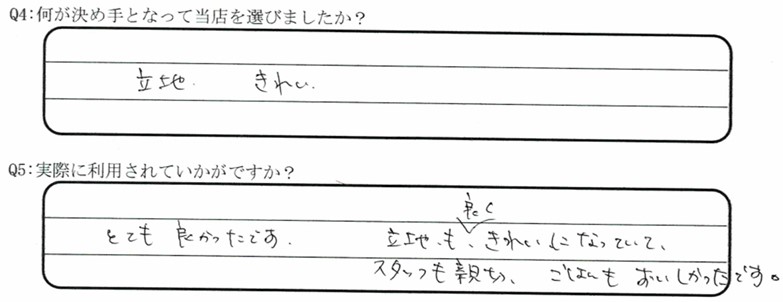 Q4:何が決め手となって当店を選びましたか？
立地. きれい.
Q5:実際に利用されていかがですか？
とても 良かったです. 立地も良く、きれいになっていて、
スタッフも親切、ごはんもおいしかったです。